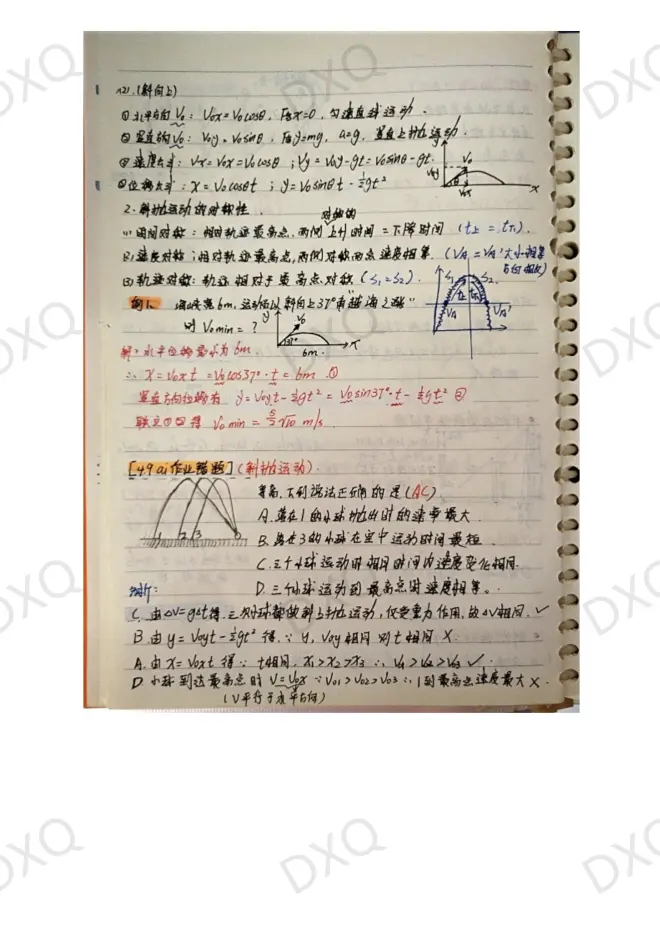 (2).(斜向上)
①水平方向 V₀: V₀x=V₀cosθ, F合x=0, 匀速直线运动.
②竖直方向 V₀: V₀y=V₀sinθ, F合y=mg, a=g, 竖直上抛运动.
③速度公式: Vx=V₀x=V₀cosθ ; Vy=V₀y-gt=V₀sinθ-gt.
④位移公式: x=V₀cosθt ; y=V₀sinθt-½gt²
y V₀ V₀y θ V₀x x
2.斜抛运动的对称性.
对称的
(1)时间对称: 相对轨迹最高点,两侧上升时间=下降时间 (t上=t下)
(2)速度对称: 相对轨迹最高点,两侧对称两点速度相等. (VA=VA'大小相等
方向相反)
(3)轨迹对称: 轨迹相对于最高点对称 (S₁=S₂).
S₁ S₂ t上 t下 VA VA'
例1. 海峡宽6m,运动员以斜向上37°角"越海之跳"
则V₀min=? y V₀ 37° 6m x
解: 水平位移最小为6m.
∴ x=V₀xt=V₀cos37°·t=6m ①
竖直方向位移有 y=V₀yt-½gt²=V₀sin37°·t-½gt² ②
联立①②得 V₀min=5/2√10 m/s.
[4.9 ai作业错题](斜抛运动).
1 2 3
等高,下列说法正确的是(AC)
A.落在1的小球抛出时的速率最大.
B.落在3的小球在空中运动时间最短.
C.三个小球运动时相同时间内速度变化相同.
D.三个小球运动到最高点时速度相等。
分析:
C.由ΔV=gΔt得.三次小球都做斜上抛运动,仅受重力作用,故ΔV相同.✓
B.由y=V₀yt-½gt²得 ∵ y,V₀y相同 则t相同 X.
A.由x=V₀xt得∵ t相同,x₁>x₂>x₃ ∴ V₁>V₂>V₃ ✓.
D.小球到达最高点时 V=V₀x ∵V₀₁>V₀₂>V₀₃∴1到最高点速度最大X.
(V平行于水平方向)
DXQ